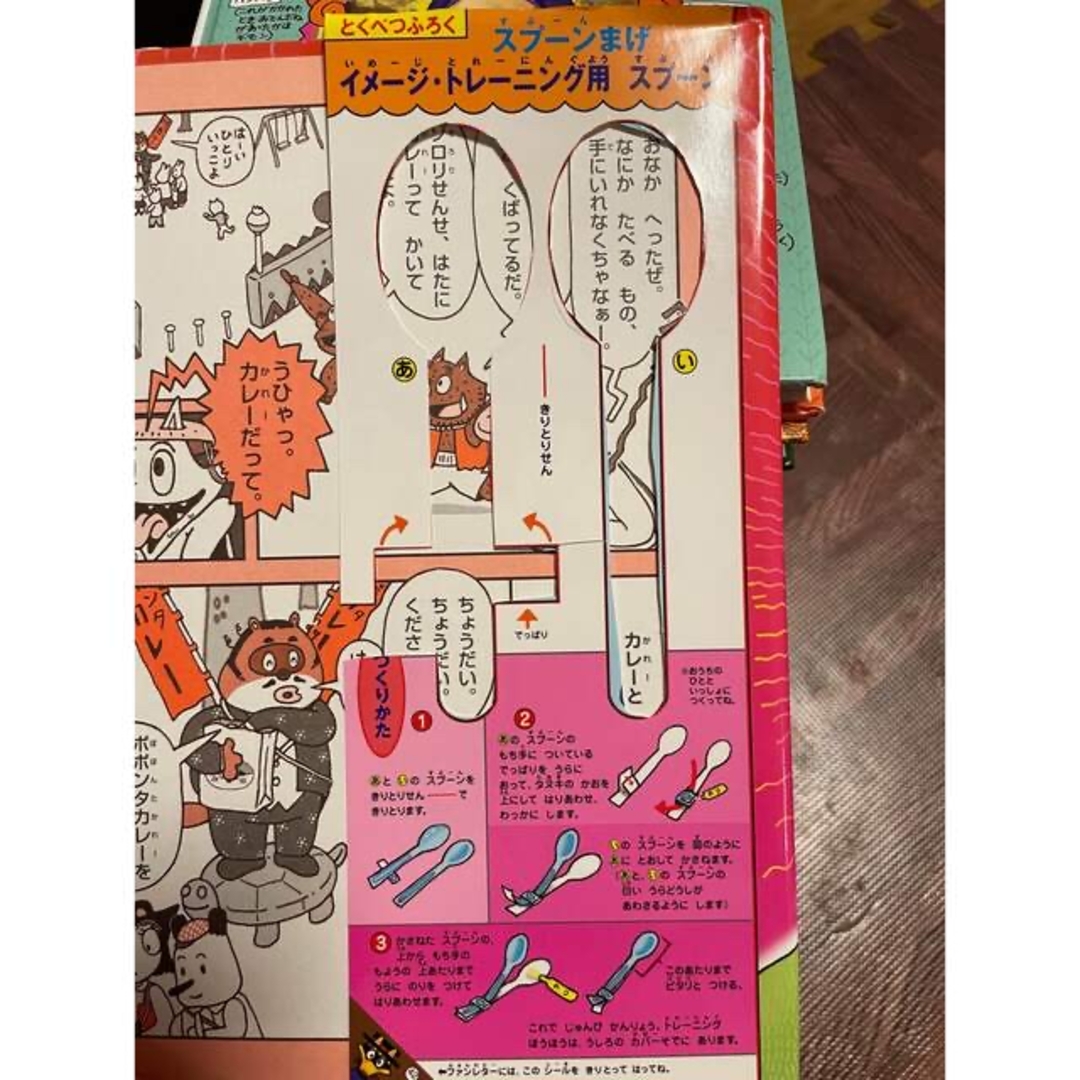 これがかかれた
とくべつふろく
スプーンまげ
イメージ・トレーニング用 スプーン
はーい
ひとり
いっこよ
おなか へったぜ。
なにか たべる もの、
手にいれなくちゃなぁー。
くばってるだ。
ゾロリせんせ、はたに
カレーって かいて
あ
い
きりとりせん
うひゃっ。
カレーだって。
でっぱり
カレーと
ちょうだい。
ちょうだい。
くださ
レー
ポポンタカレーを
※おうちの
ひとと
いっしょに
つくってね。
つくりかた
1
あと いの スプーンを
きりとりせん ―― で
きりとります。
2
あの スプーンの
もち手に ついている
でっぱりを うらに
おって、タヌキの かおを
上にして はりあわせ、
わっかに します。
いの スプーンを 図のように
あに とおして かさねます。
(あと、いの スプーンの
白い うらどうしが
あわさるように します)
3
かさねた スプーンの、
上から もち手の
もようの 上あたりまで
うらに のりを つけて
はりあわせます。
このあたりまで
ピタリと つける。
これで じゅんび かんりょう。トレーニング
ほうほうは、うしろの カバーそでに あります。
←ファンレターには、この シールを きりとって はってね。